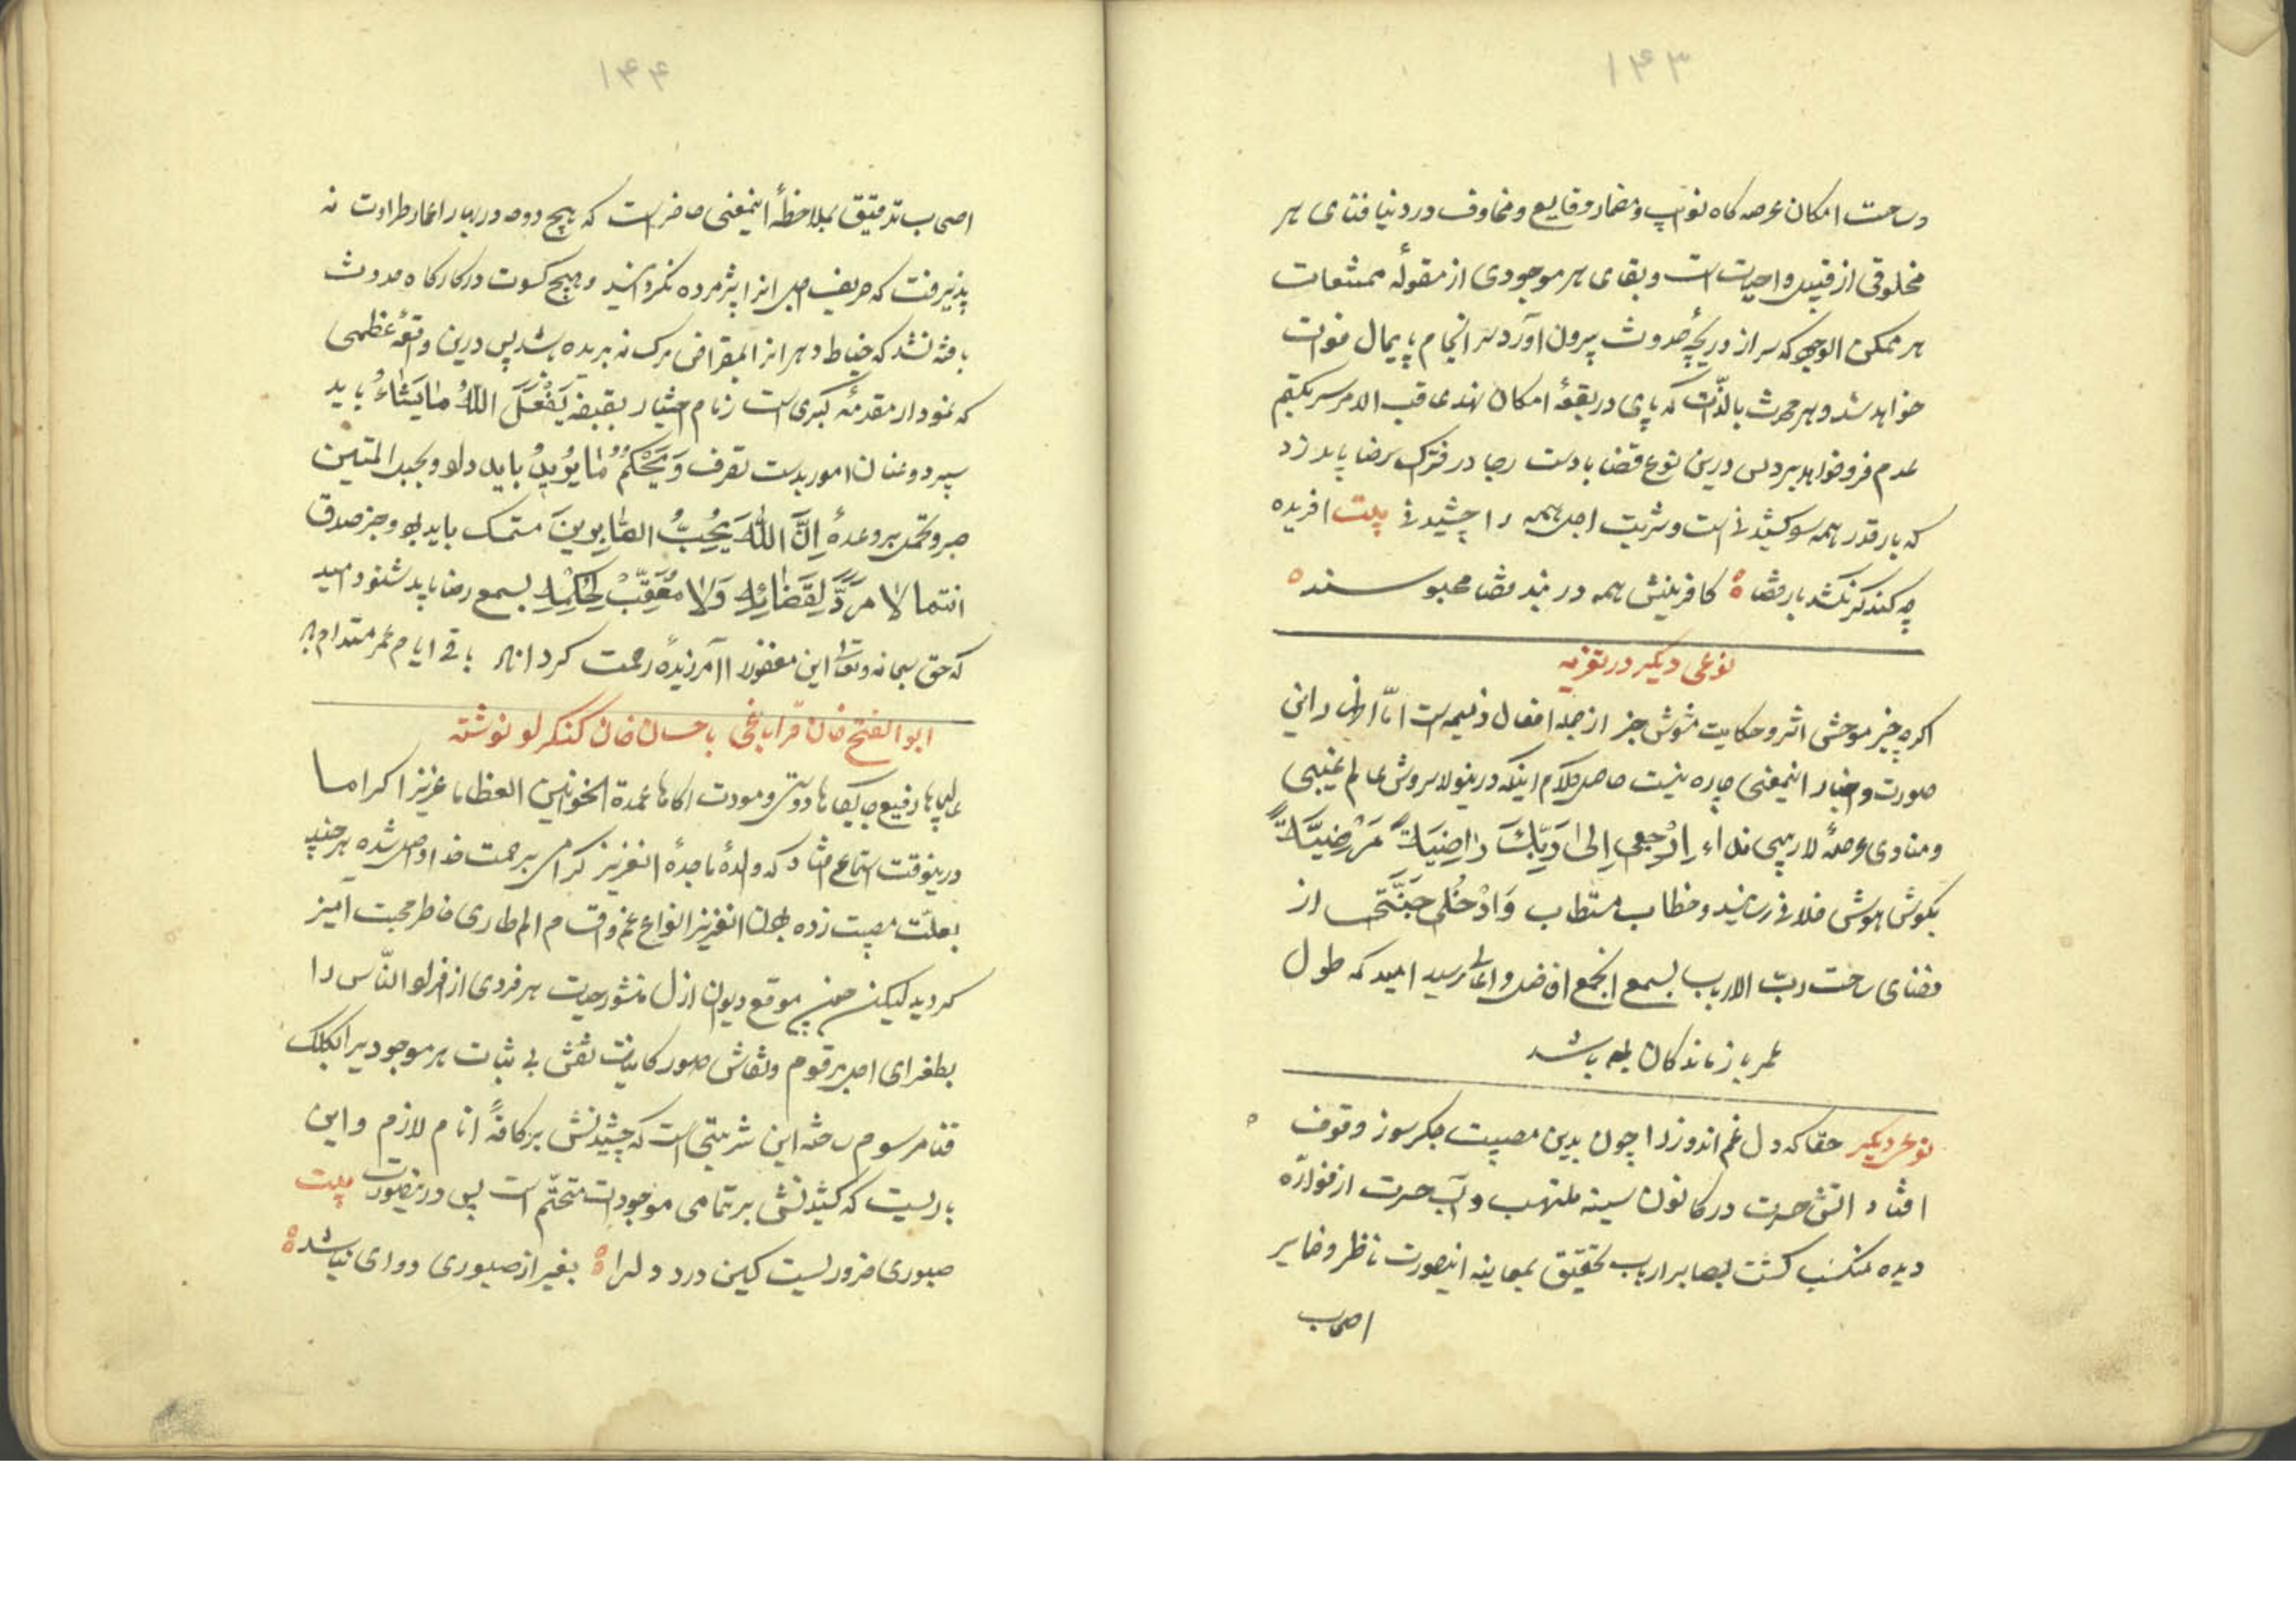 ۱۴۳
وساحت امکان عرصه کاه نوایب و مضمار وقایع و مخاوف در دنیا فنای هر
مخلوقی از قبیل واجبات است و بقای هر موجودی از مقولهٔ ممتنعات
هر ممکن الوجود که سر از دریچهٔ حدوث بیرون آورد سرانجام پایمال فوات
خواهد شد و هر محدث بالذات که پای در بقعهٔ امکان نهد عاقب الامر سر بکتم
عدم فرو خواهد برد پس درین نوع قضا بادست رجا در فتراک رضا باید زد
که بار قدر همه سو کشیدنی است و شربت اجل همه را چشیدنی بیت آفریده
چه کند کر نکشد بار قضا کافرینش همه در بند قضا محبوسند
نوعی دیکر در تعزیه
اکرچه خبر موحشی اثر و حکایت مشوش خبر از جمله افعال ذمیمه است اما از اظهار این
صورت و اخبار اینمعنی چاره نیست حاصل کلام اینکه درینولا سروش عالم غیبی
و منادی عرصهٔ لاریبی نداء اِرْجِعی اِلیٰ رَبِّکَ رٰاضِیَةً مَرْضِیَّةً
بکوش هوش فلانی رسانید و خطاب مستطاب وَادْخُلی جَنَّتی از
فضای ساحت ربّ الارباب بسمع انجمع افاضل و اعالی رسید امید که طول
عمر بازماندکان بوده باشد
نوعی دیکر حقا که دل غم اندوز را چون بدین مصیبت جکر سوز وقوف
افتاد اتش حسرت در کانون سینه ملتهب و آب حسرت از فوارّه
دیده منسکب کشت بصایر ارباب تحقیق بمعاینه اینصورت ناظر و ضمایر
اصحاب
۱۴۴
اصحاب تدقیق بملاحظهٔ اینمعنی حاضر است که هیچ دوحه در بهار اعمار طراوت نه
پذیرفت که خریف اجل انرا پژمرده نکردانید و هیچ کسوت در کارکاه حدوث
بافته نشد که خیاط دهر انرا بمقراض مرک نه بریده باشد پس درین واقعهٔ عظمی
که نمودار مقدمهٔ کبری است زمام اختیار بقبضه یَفْعَلُ اللّٰهُ مٰا یَشٰاءُ باید
سپرد و عنان امور بدست تصرف وَیَحْکُمُ مٰا یُریدُ باید داد و بحبل المتین
صبر و تحمل بر وعدهٔ اِنَّ اللّٰهَ یُحِبُّ الصّٰابِرینَ متمسک باید بود و جز صدق
انتما لٰا مَرَدَّ لِقَضٰائِهِ وَلٰا مُعَقِّبَ لِحُکْمِهِ بسمع رضا باید شنود امید
که حق سبحانه و تعالی این مغفور را آمرزیدهٔ رحمت کرداناد باقی ایام عمر مستدام باد
ابوالفتح خان قراباغی باحسان خان کنکرلو نوشته
عالیجاها رفیع جایکاها دوستی و مودت اکاها عمدة الخوانین العظاما عزیزا کراما
درینوقت استماع افتاد که والدهٔ ماجدهٔ انعزیز کرامی برحمت خدا واصل شده هرچند
بعلت مصیبت زده بودن انعزیز انواع غم و اقسام الم طاری خاطر محبت آمیز
کردید لیکن چون موقع دیوان ازل منشور حیات هر فردی از افراد النّاس را
بطغرای اجل مرقوم و نقاش صور کاینات نقش بی ثبات هر موجودیرا بکلک
فنا مرسوم ساخته این شربتی است که چشیدنش بر کافهٔ انام لازم و این
باریست که کشیدنش بر تمامی موجودات متحتّم است پس درینصورت بیت
صبوری ضرور یست کین درد دلرا بغیر از صبوری دوای نباشد